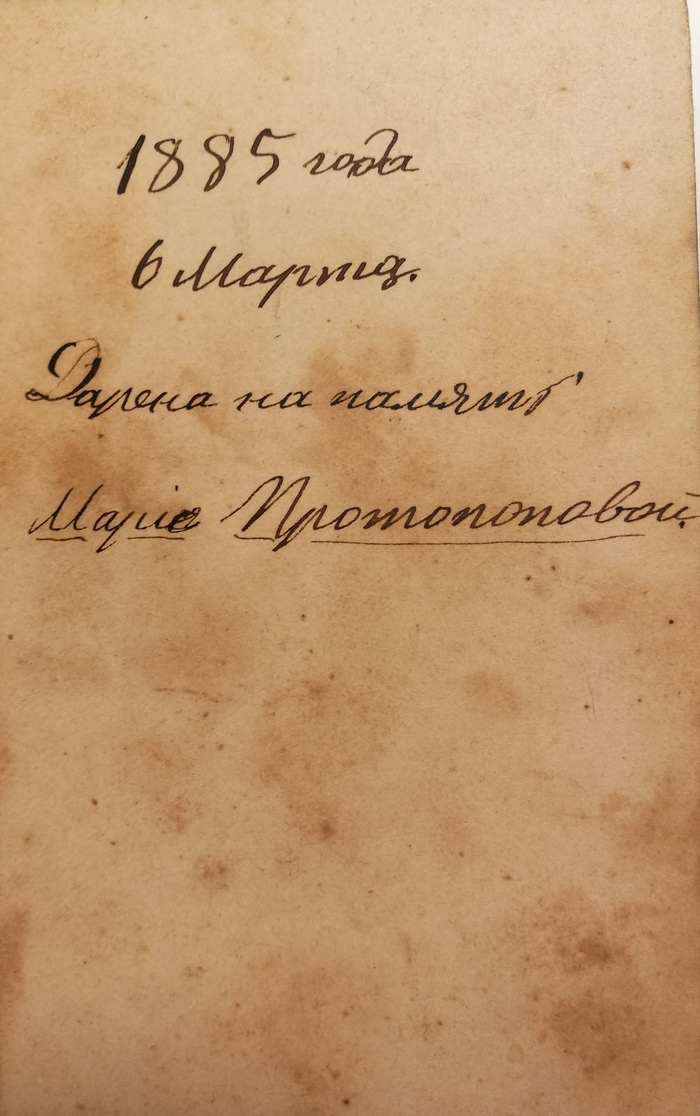 1885 года
6 Марта.
Дарена на память
Маріе Протопоповой.